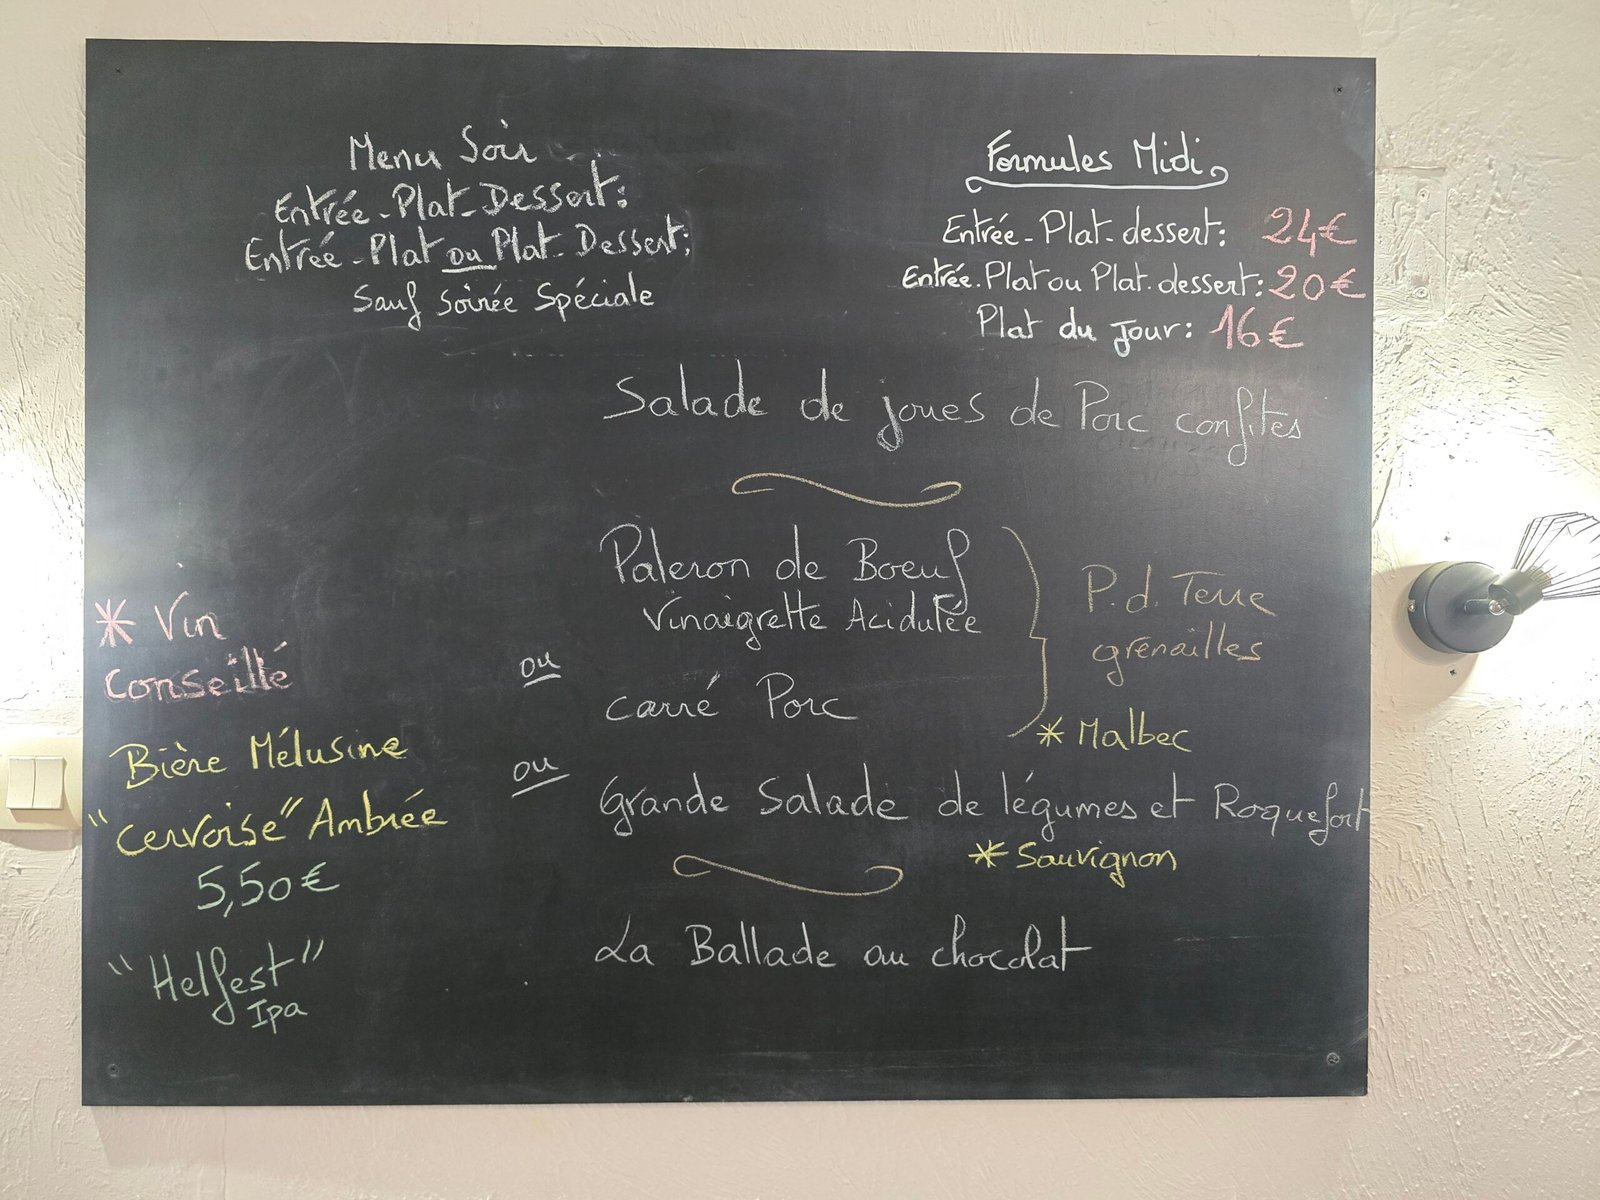 Menu Soir
Entrée - Plat - Dessert :
Entrée - Plat ou Plat - Dessert :
Sauf Soirée Spéciale
Formules Midi
Entrée - Plat - dessert : 24€
Entrée - Plat ou Plat - dessert : 20€
Plat du jour : 16€
Salade de joues de Porc confites
Paleron de Boeuf
Vinaigrette Acidulée
P. d. Terre
grenailles
ou
carré Porc
* Malbec
ou
Grande Salade de légumes et Roquefort
* Sauvignon
La Ballade au chocolat
* Vin
conseillé
Bière Mélusine
"cervoise" Ambrée
5,50€
"Helfest"
Ipa